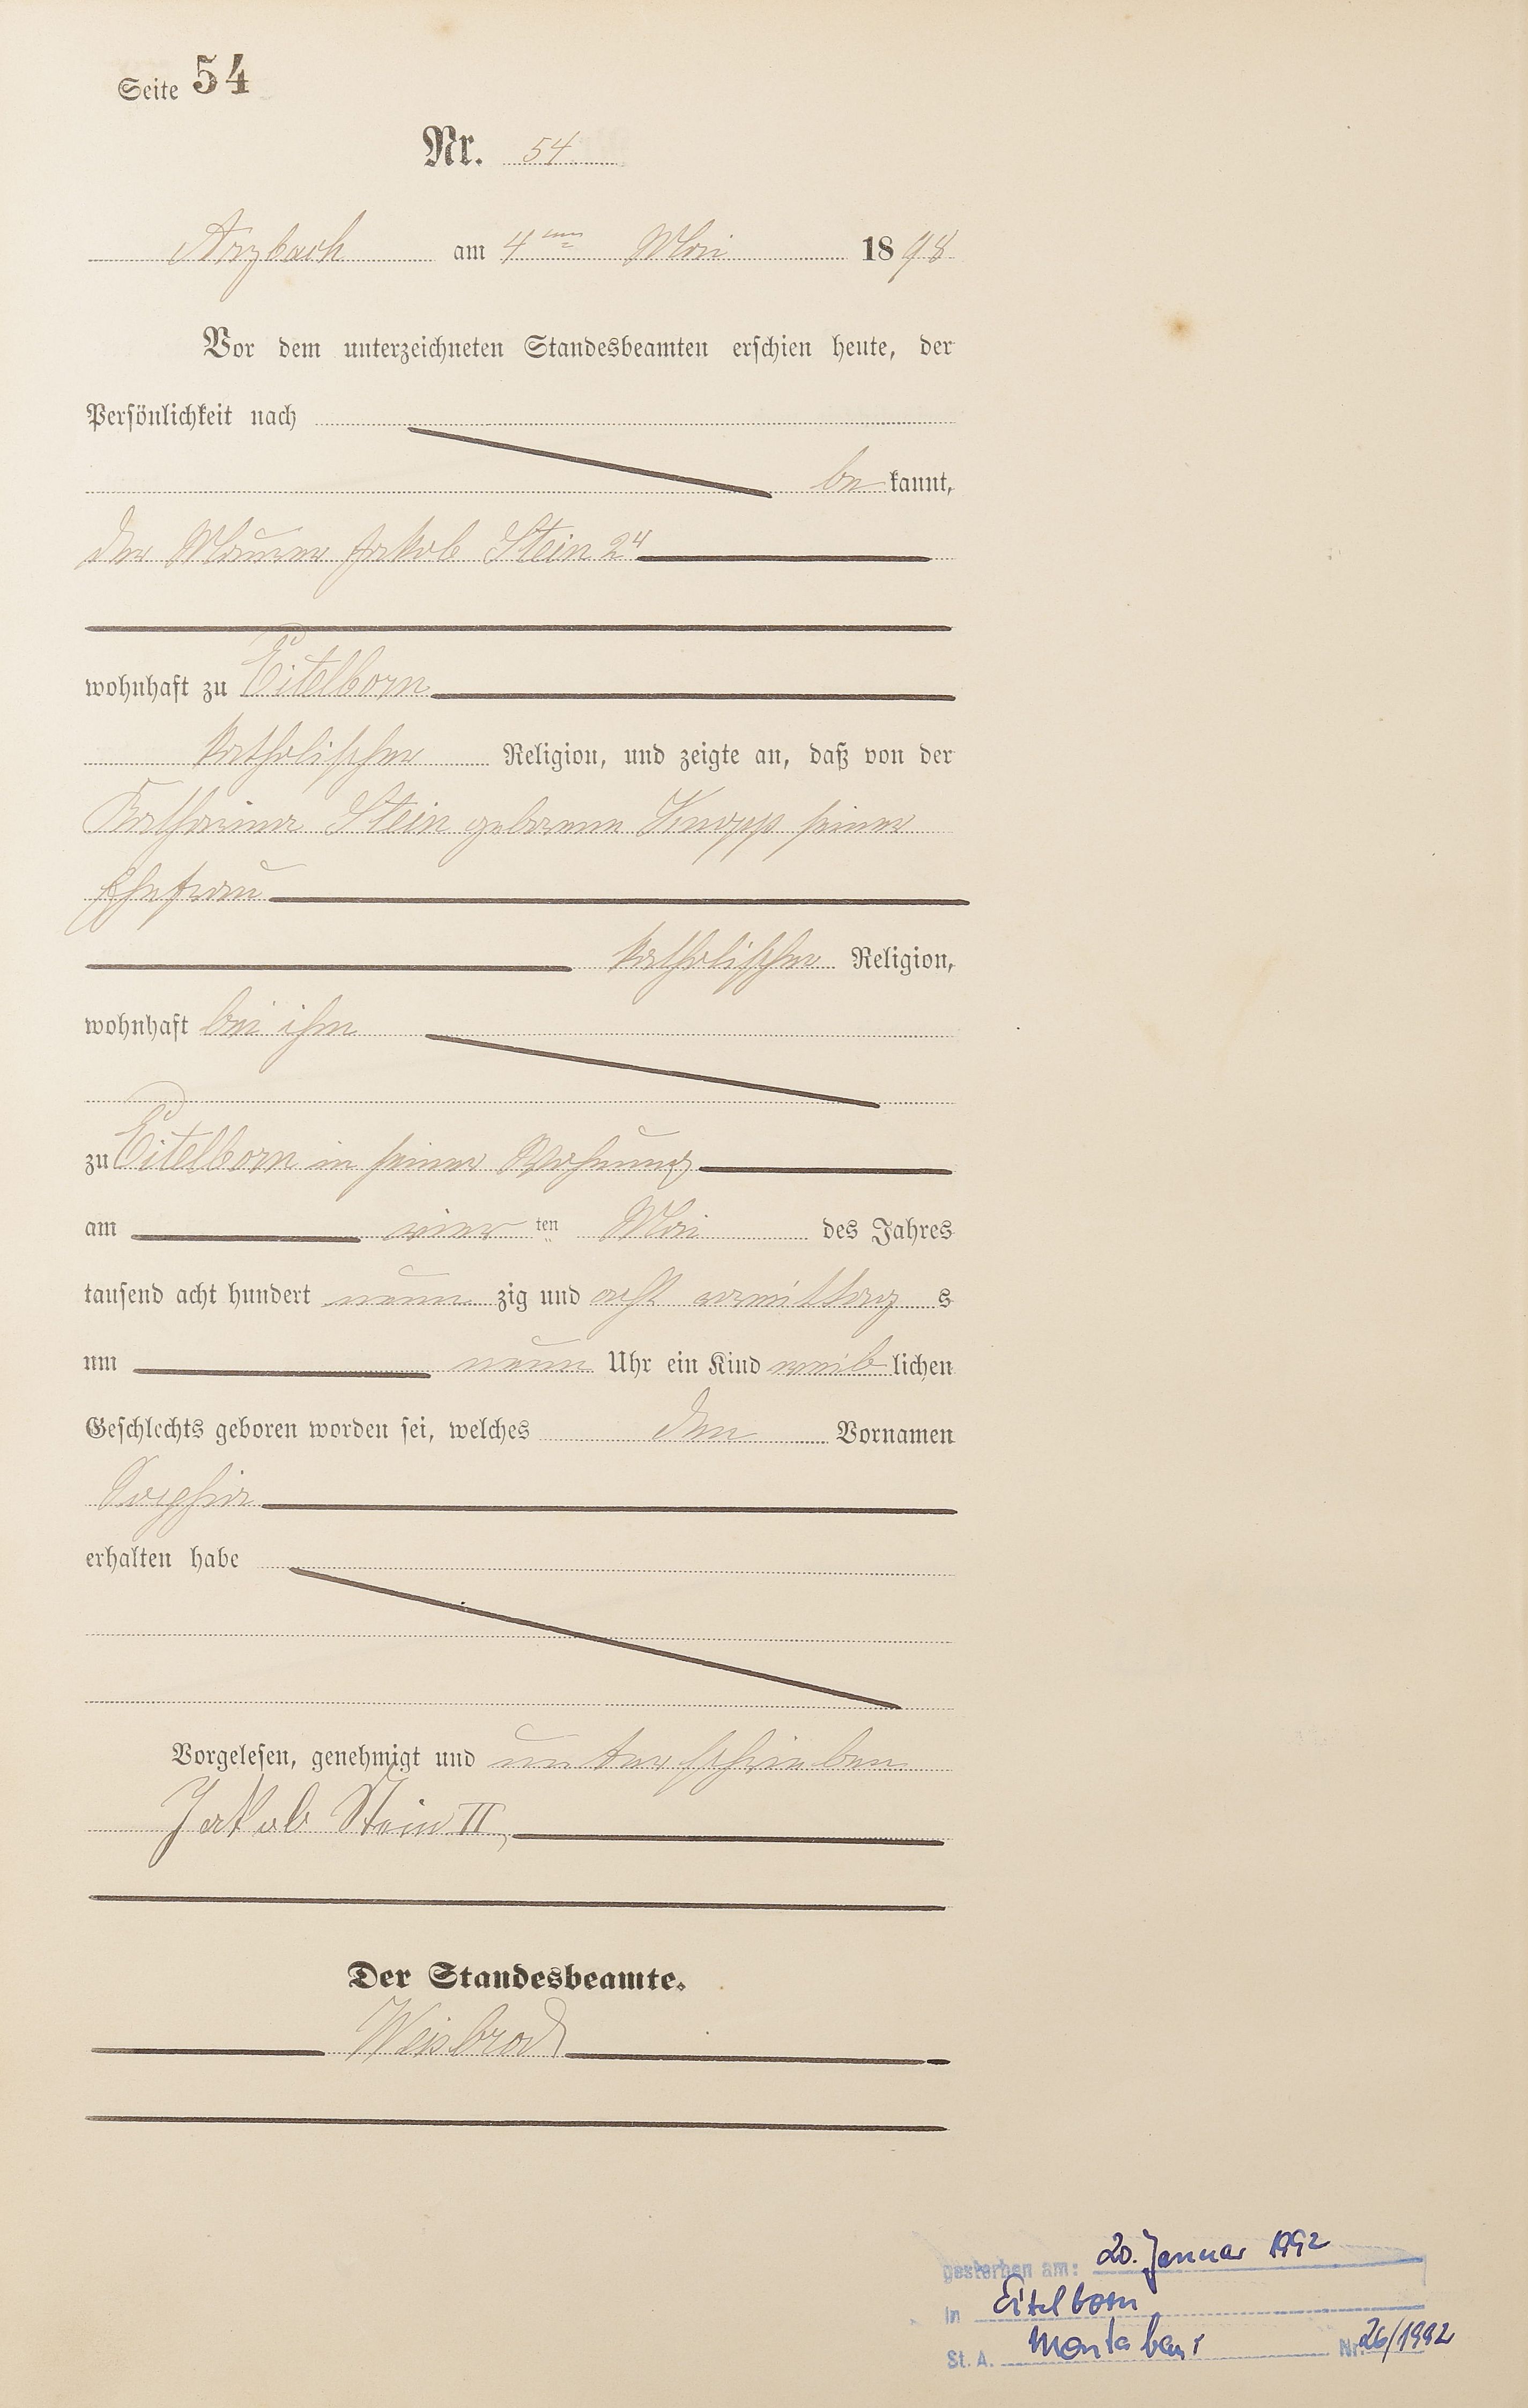 Seite 54
Nr. 54
Arzbach am 4ten Mai 1898
Vor dem unterzeichneten Standesbeamten erschien heute, der
Persönlichkeit nach
be kannt,
der Maurer Jakob Stein 2r
wohnhaft zu Eitelborn
katholischer Religion, und zeigte an, daß von der
Katharina Stein geborene Knopp seiner
Ehefrau
katholischer Religion,
wohnhaft bei ihm
zu Eitelborn in seiner Wohnung
am vier ten Mai des Jahres
tausend acht hundert neun zig und acht vormittag s
um neun Uhr ein Kind weib lichen
Geschlechts geboren worden sei, welches den Vornamen
Sophia
erhalten habe
Vorgelesen, genehmigt und unterschrieben
Jakob Stein II
Der Standesbeamte.
Weisbrod
gestorben am: 20. Januar 1992
in Eitelborn
St. A. Montabaur Nr. 26/1992